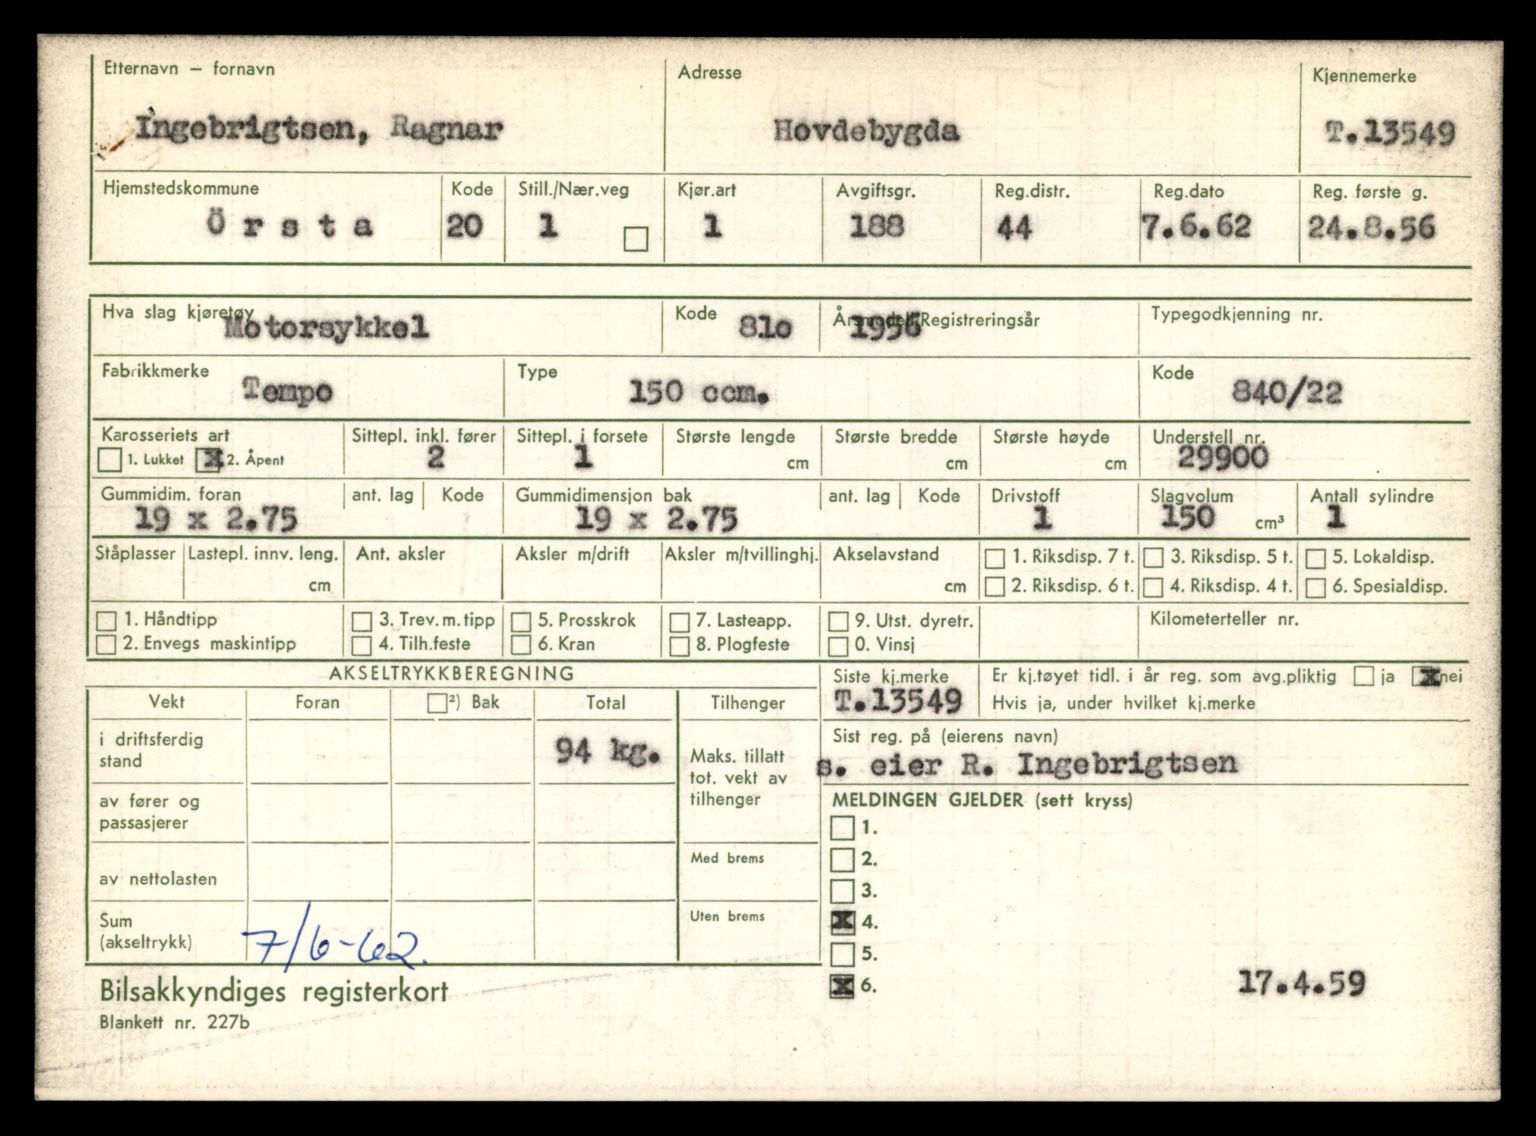 Etternavn – fornavn Adresse Kjennemerke
Ingebrigtsen, Ragnar Hovdebygda T.13549
Hjemstedskommune Kode Still./Nær.veg Kjør.art Avgiftsgr. Reg.distr. Reg.dato Reg. første g.
Örsta 20 1 1 188 44 7.6.62 24.8.56
Hva slag kjøretøy Kode Årsmodell/Registreringsår Typegodkjenning nr.
Motorsykkel 81o 1956
Fabrikkmerke Type Kode
Tempo 150 ccm. 840/22
Karosseriets art Sittepl. inkl. fører Sittepl. i forsete Største lengde Største bredde Største høyde Understell nr.
1. Lukket X 2. Åpent 2 1 cm cm cm 29900
Gummidim. foran ant. lag Kode Gummidimensjon bak ant. lag Kode Drivstoff Slagvolum Antall sylindre
19 x 2.75 19 x 2.75 1 150 cm³ 1
Ståplasser Lastepl. innv. leng. Ant. aksler Aksler m/drift Aksler m/tvillinghj. Akselavstand 1. Riksdisp. 7 t. 3. Riksdisp. 5 t. 5. Lokaldisp.
cm cm 2. Riksdisp. 6 t. 4. Riksdisp. 4 t. 6. Spesialdisp.
1. Håndtipp 3. Trev. m. tipp 5. Prosskrok 7. Lasteapp. 9. Utst. dyretr. Kilometerteller nr.
2. Envegs maskintipp 4. Tilh.feste 6. Kran 8. Plogfeste 0. Vinsj
AKSELTRYKKBEREGNING Siste kj.merke Er kj.tøyet tidl. i år reg. som avg.pliktig ja X nei
Vekt Foran ²) Bak Total Tilhenger T.13549 Hvis ja, under hvilket kj.merke
i driftsferdig stand 94 kg. Maks. tillatt tot. vekt av tilhenger
Sist reg. på (eierens navn)
s. eier R. Ingebrigtsen
av fører og passasjerer
MELDINGEN GJELDER (sett kryss)
1.
Med brems 2.
av nettolasten 3.
Sum (akseltrykk) 7/6-62. Uten brems X 4.
5.
Bilsakkyndiges registerkort X 6. 17.4.59
Blankett nr. 227b